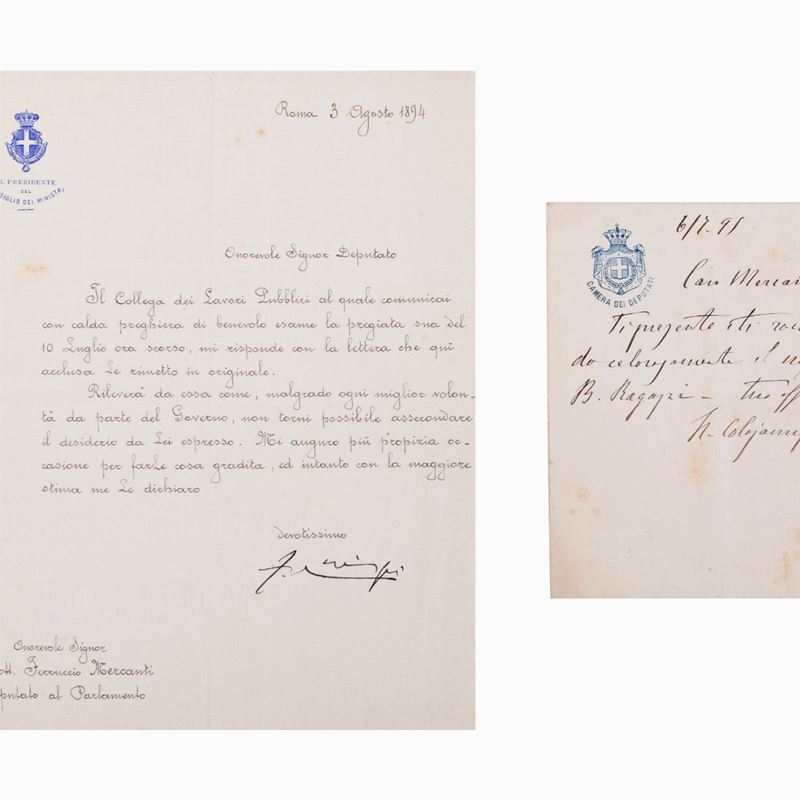 Roma 3 Agosto 1894
L PRESIDENTE
DEL
SIGLIO DEI MINISTRI
Onorevole Signor Deputato
Il Collega dei Lavori Pubblici al quale comunicai
con calda preghiera di benevolo esame la pregiata sua del
10 Luglio ora scorso, mi risponde con la lettera che qui
acclusa Le rimetto in originale.
Rileverà da essa come, malgrado ogni miglior volon-
tà da parte del Governo, non torni possibile assecondare
il desiderio da Lei espresso. Mi auguro più propizia oc-
casione per farLe cosa gradita, ed intanto con la maggiore
stima me Le dichiaro
devotissimo
F. Crispi
Onorevole Signor
ott. Ferruccio Mercanti
putato al Parlamento
6/7.95
CAMERA DEI DEPUTATI
Caro Mercan
Ti presento e ti
do calorosamente il
B. Ragazzi – tuo aff
N. Colajanni